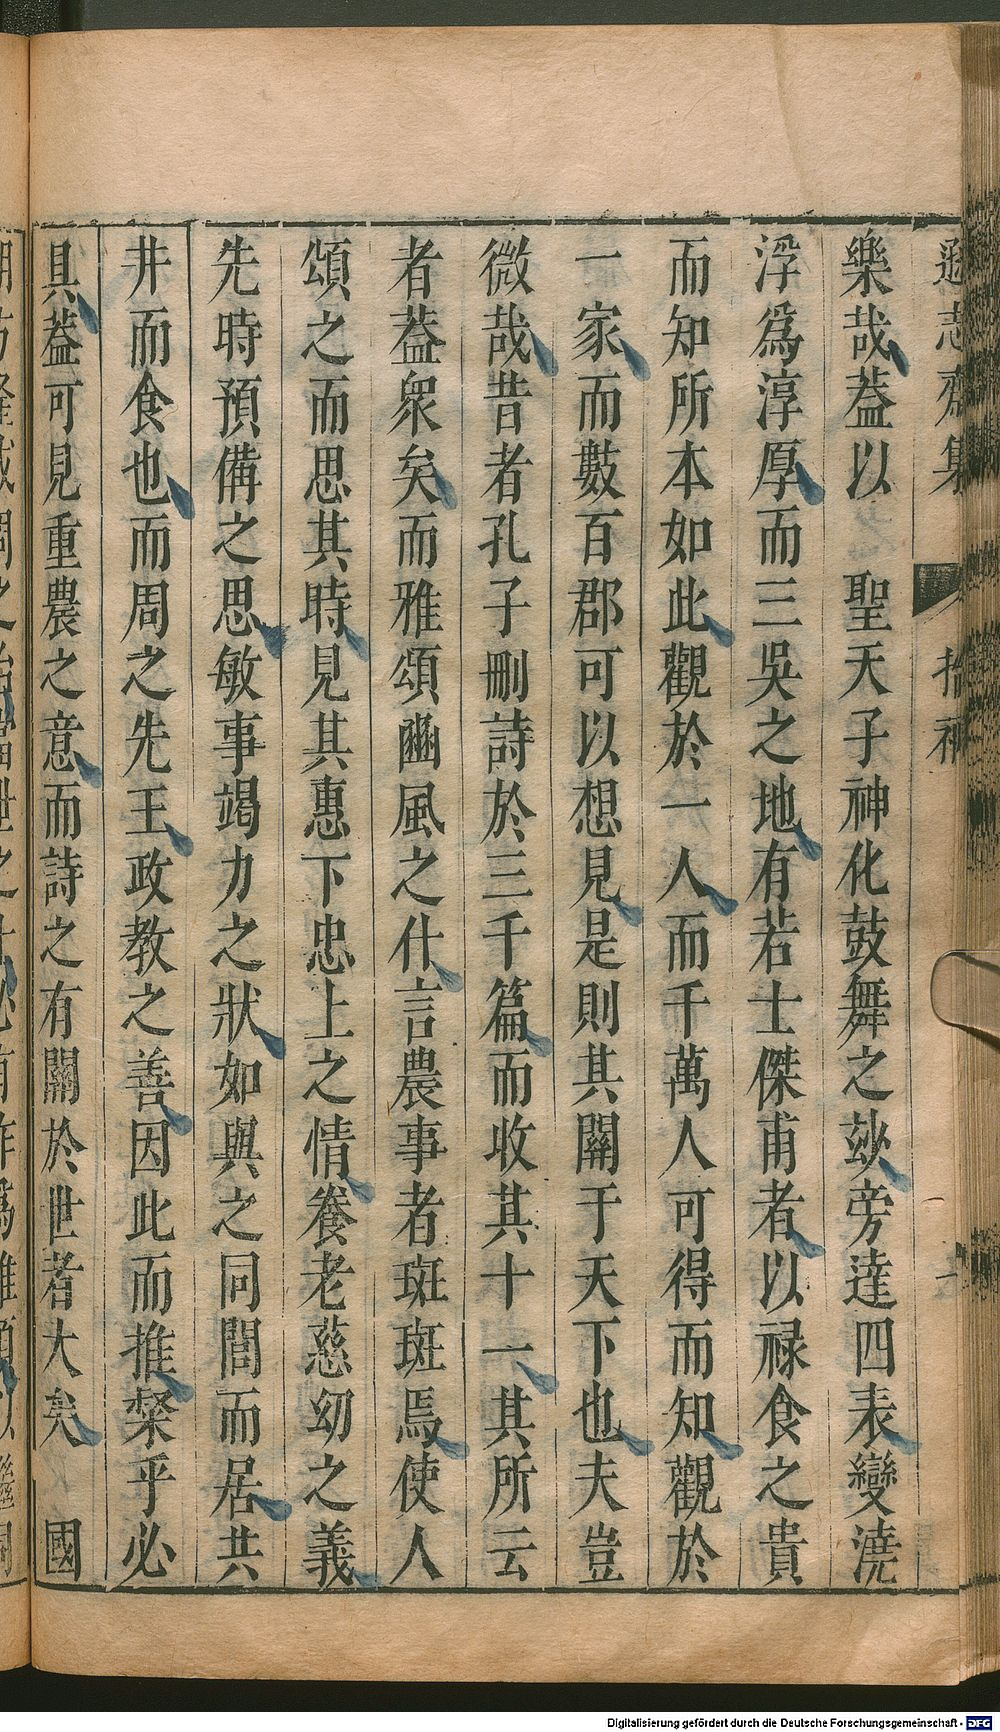 遜志齋集
樂哉葢以　聖天子神化鼓舞之玅旁達四表變澆
浮爲淳厚而三吳之地有若士傑甫者以禄食之貴
而知所本如此觀於一人而千萬人可得而知觀於
一家而數百郡可以想見是則其關于天下也夫豈
微哉昔者孔子刪詩於三千篇而收其十一其所云
者葢衆矣而雅頌豳風之什言農事者斑斑焉使人
頌之而思其時見其惠下忠上之情養老慈幼之義
先時預備之思敏事竭力之狀如與之同閭而居共
井而食也而周之先王政教之善因此而推槩乎必
具葢可見重農之意而詩之有關於世者大矣　國
Digitalisierung gefördert durch die Deutsche Forschungsgemeinschaft - DFG